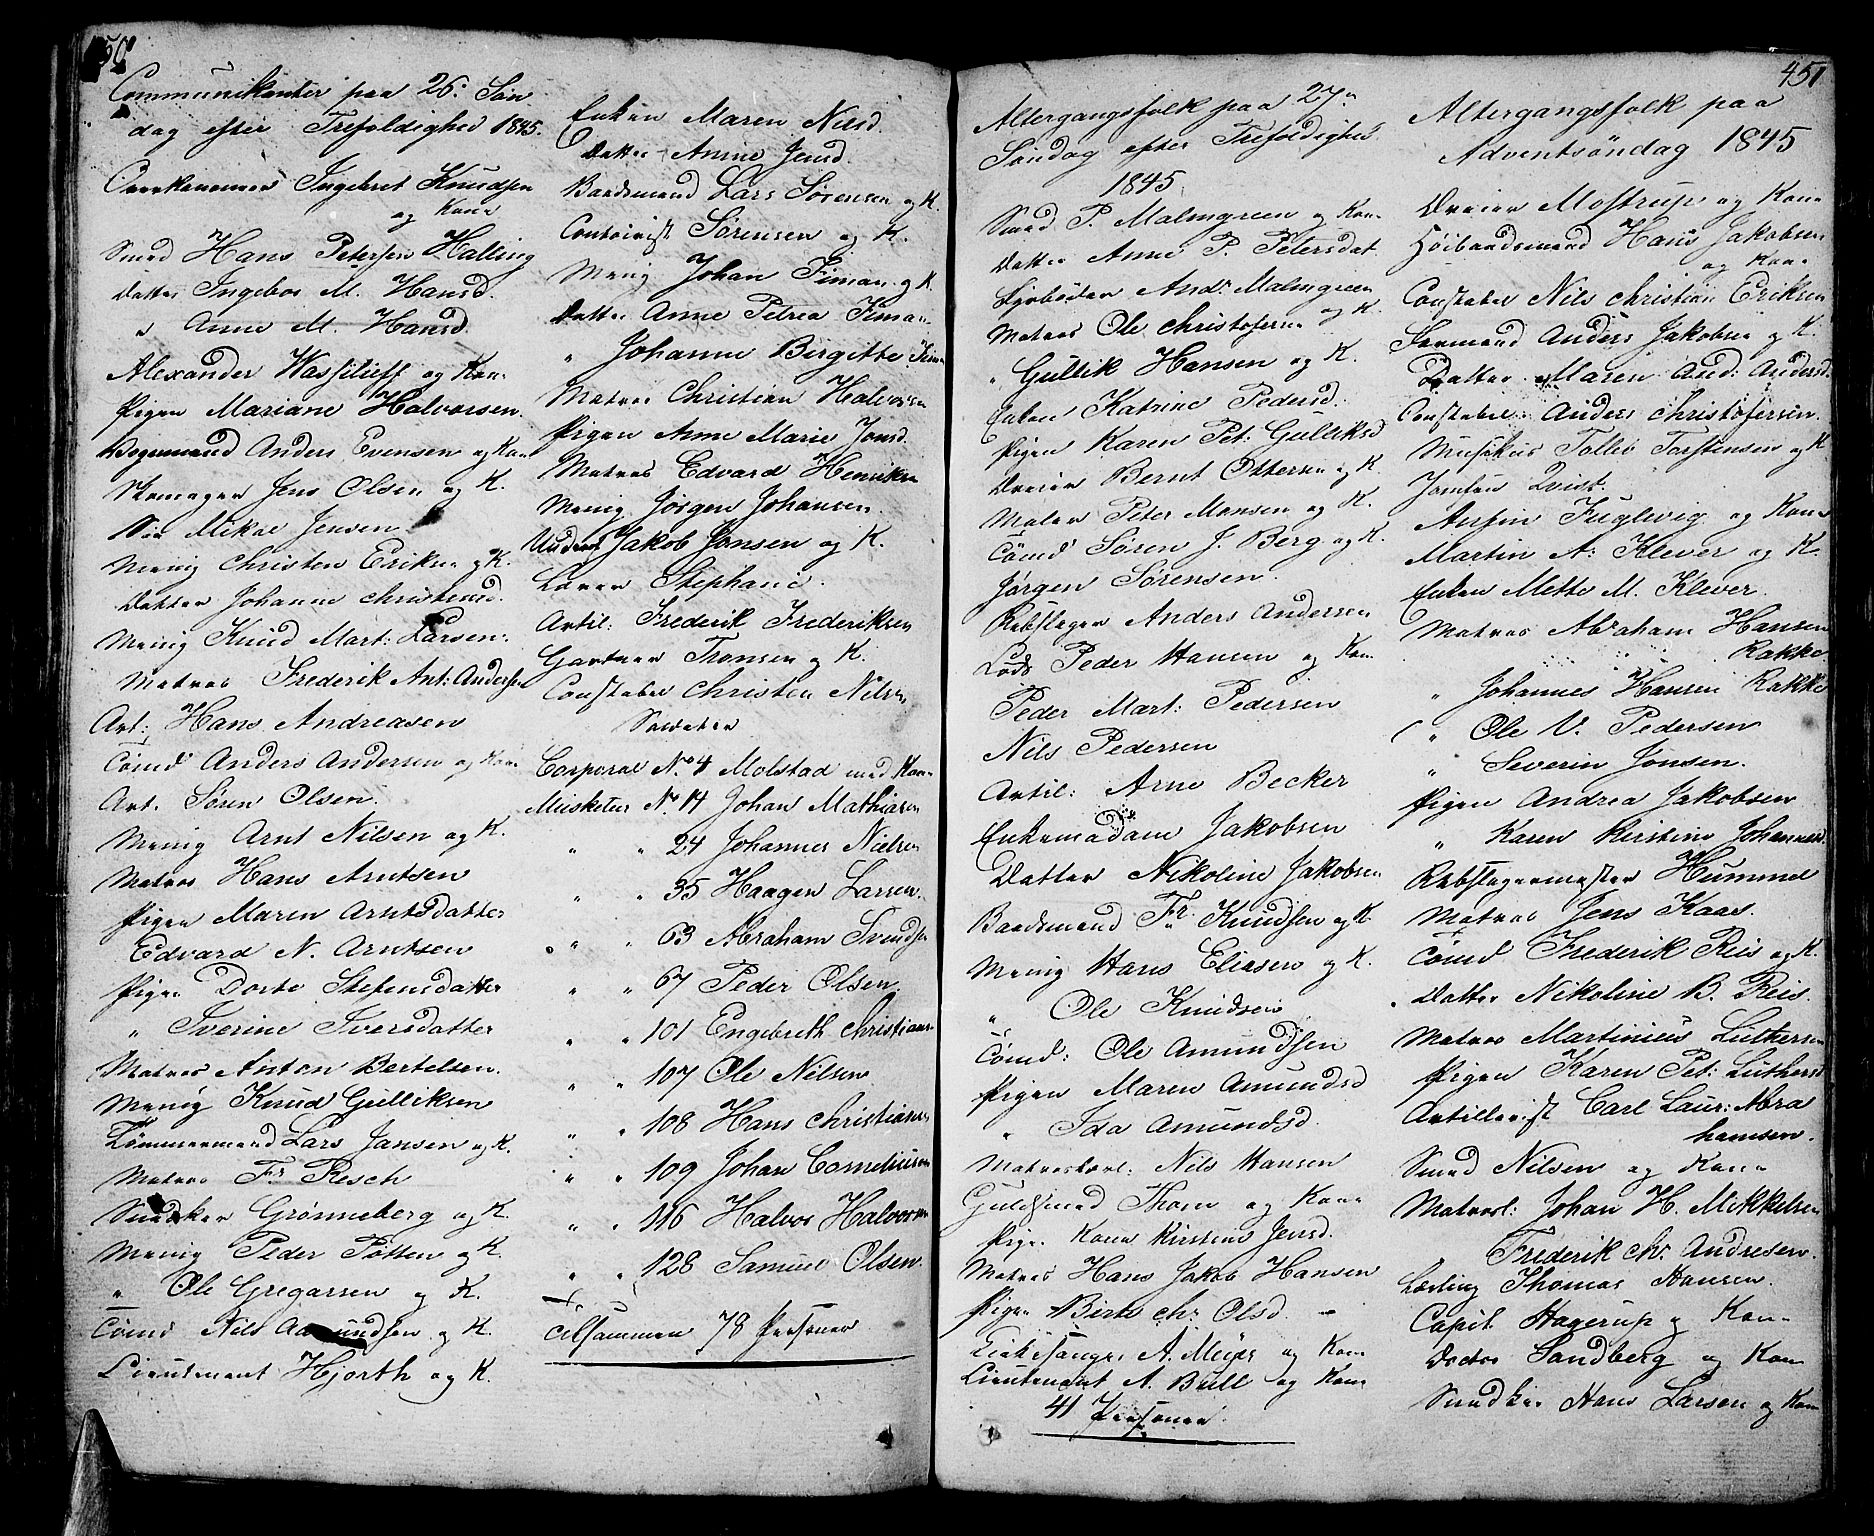 450
Communikanter paa 26. Søn
dag efter Trefoldighed 1845.
Overkanoneer Ingebret Knudsen
og Kone
Smed Hans Petersen Halling
Datter Ingebor M. Hansd.
" Anne M. Hansd.
Alexander Wassilieff og Kone
Pigen Mariane Halvorsen.
Vognmand Anders Evensen og Kone
Skomager Jens Olsen og K.
Mikal Jensen
Menig Christen Eriksen og K.
Datter Johanne Christensd.
Menig Knud Mart: Larsen.
Matros Frederik Ant: Andersen
Art: Hans Andreasen
Tømd Anders Andersen og Kone
Art. Søren Olsen.
Menig Arnt Nilsen og K.
Matros Hans Arntsen
Pigen Maren Arntsdatter
Edvard N. Arntsen
Pigen Dorte Stefensdatter
" Iverine Iversdatter
Matros Anton Bertelsen.
Menig Knud Gulliksen
Tømmermand Lars Jansen og K.
Matros Fr. Resch
Snedker Grønneberg og K.
Menig Peder Potten og K.
" Ole Gregarsen og K.
Tømd Nils Aamundsen og K.
Lieutenant Hjorth og K.
Enken Maren Nilsd
Datter Anne Jensd.
Baadsmand Lars Sørensen og K.
Contoirist Sørensen og K.
Menig Johan Timan og K
Datter Anne Petrea Timan
" Johanne Birgitte Timan
Matros Christian Halvorsen
Pigen Anne Marie Jonsd.
Matros Edvard Henriksen
Menig Jørgen Johansen.
Jakob Jansen og K.
Lærer Stephanie.
Artil: Frederik Frederiksen
Gartner Tronsen og K.
Constabel Christen Nilsen
Soldater
Corporal No. 4 Molstad med Kone
Musketeer No. 14 Johan Mathiasen
" " 24 Johannes Nielsen
" " 35 Haagen Larsen.
" " 63 Abraham Svendsen
" " 67 Peder Olsen.
" " 101 Engebreth Christiansen
" " 107 Ole Nilsen
" " 108 Hans Christiansen
" " 109 Johan Corneliusen
" " 116 Halvor Halvorsen
" " 128 Samuel Olsen.
Tilsammen 78 Personer
451
Altergangsfolk paa 27de
Søndag efter Trefoldighed
1845.
Smed P. Malmgreen og Kone
Datter Anne P. Petersdat.
Fyrbøder Andr. Malmgreen
Matros Ole Christofersen og K.
" Gullik Hansen og K.
Enken Katrine Pedersd.
Pigen Karen Pet: Gulliksd
Dreier Bernt Ottersen og K.
Maler Peter Monsen og K.
Tømd Søren J. Berg og K.
Jørgen Sørensen.
Rebslager Anders Andersen
Lods Peder Hansen og Kone
Peder Mart: Pedersen
Nils Pedersen
Artil: Arne Becker
Enkemadam Jakobsen
Datter Nikoline Jakobsen
Baadsmand Fr. Knudsen og K.
Menig Hans Eliasen og K.
" Ole Knudsen
Tømd: Ole Amundsen
Pigen Maren Amundsd
" Ida Amundsd.
Matroskorl: Nils Hansen
Guldsmed Thom og Kone
Pigen Karen Kirstine Jensd.
Matros Hans Jakob Hansen
Pigen Birte Chr. Olsd. -
Kirkesanger A. Meyer og Kone
Lieutenant A. Bull og Kone
41 Personer.
Altergangsfolk paa
Adventsöndag 1845
Dreier Mostrup og Kone
Høibaadsmand Hans Jakobsen
og Kone
Constabel Nils Christian Eriksen
Formand Anders Jakobsen og K.
Datter Maren And: Andersd.
Constabel Anders Christofersen.
Musikus Tollev Torstensen og K
Jomfru Qvist.
Ansin Fuglevig og Kone
Martin A: Klever og K.
Enken Mette M. Klever.
Matros Abraham Hansen
Rakke
" Johannes Hansen Rakke
" Ole V. Pedersen
" Severin Jonsen.
Pigen Andrea Jakobsen
" Karen Kirstine Johannesd.
Rebslagermester Hummel
Matros Jens Kaas.
Tømd Frederik Reis og K.
Datter Nikoline B. Reis.
Matros Martinius Luthersen
Pigen Karen Pet: Luthersd
Artillerist Carl Laur: Abra
hamsen.
Smed Nilsen og Kone
Matrosl: Johan H. Mikkelsen
" Frederik Chr. Andresen.
Lærling Thomas Hansen.
Capit Hagerup og Kone
Doctor Sandberg og Kone
Snedker Hans Larsen og Kone